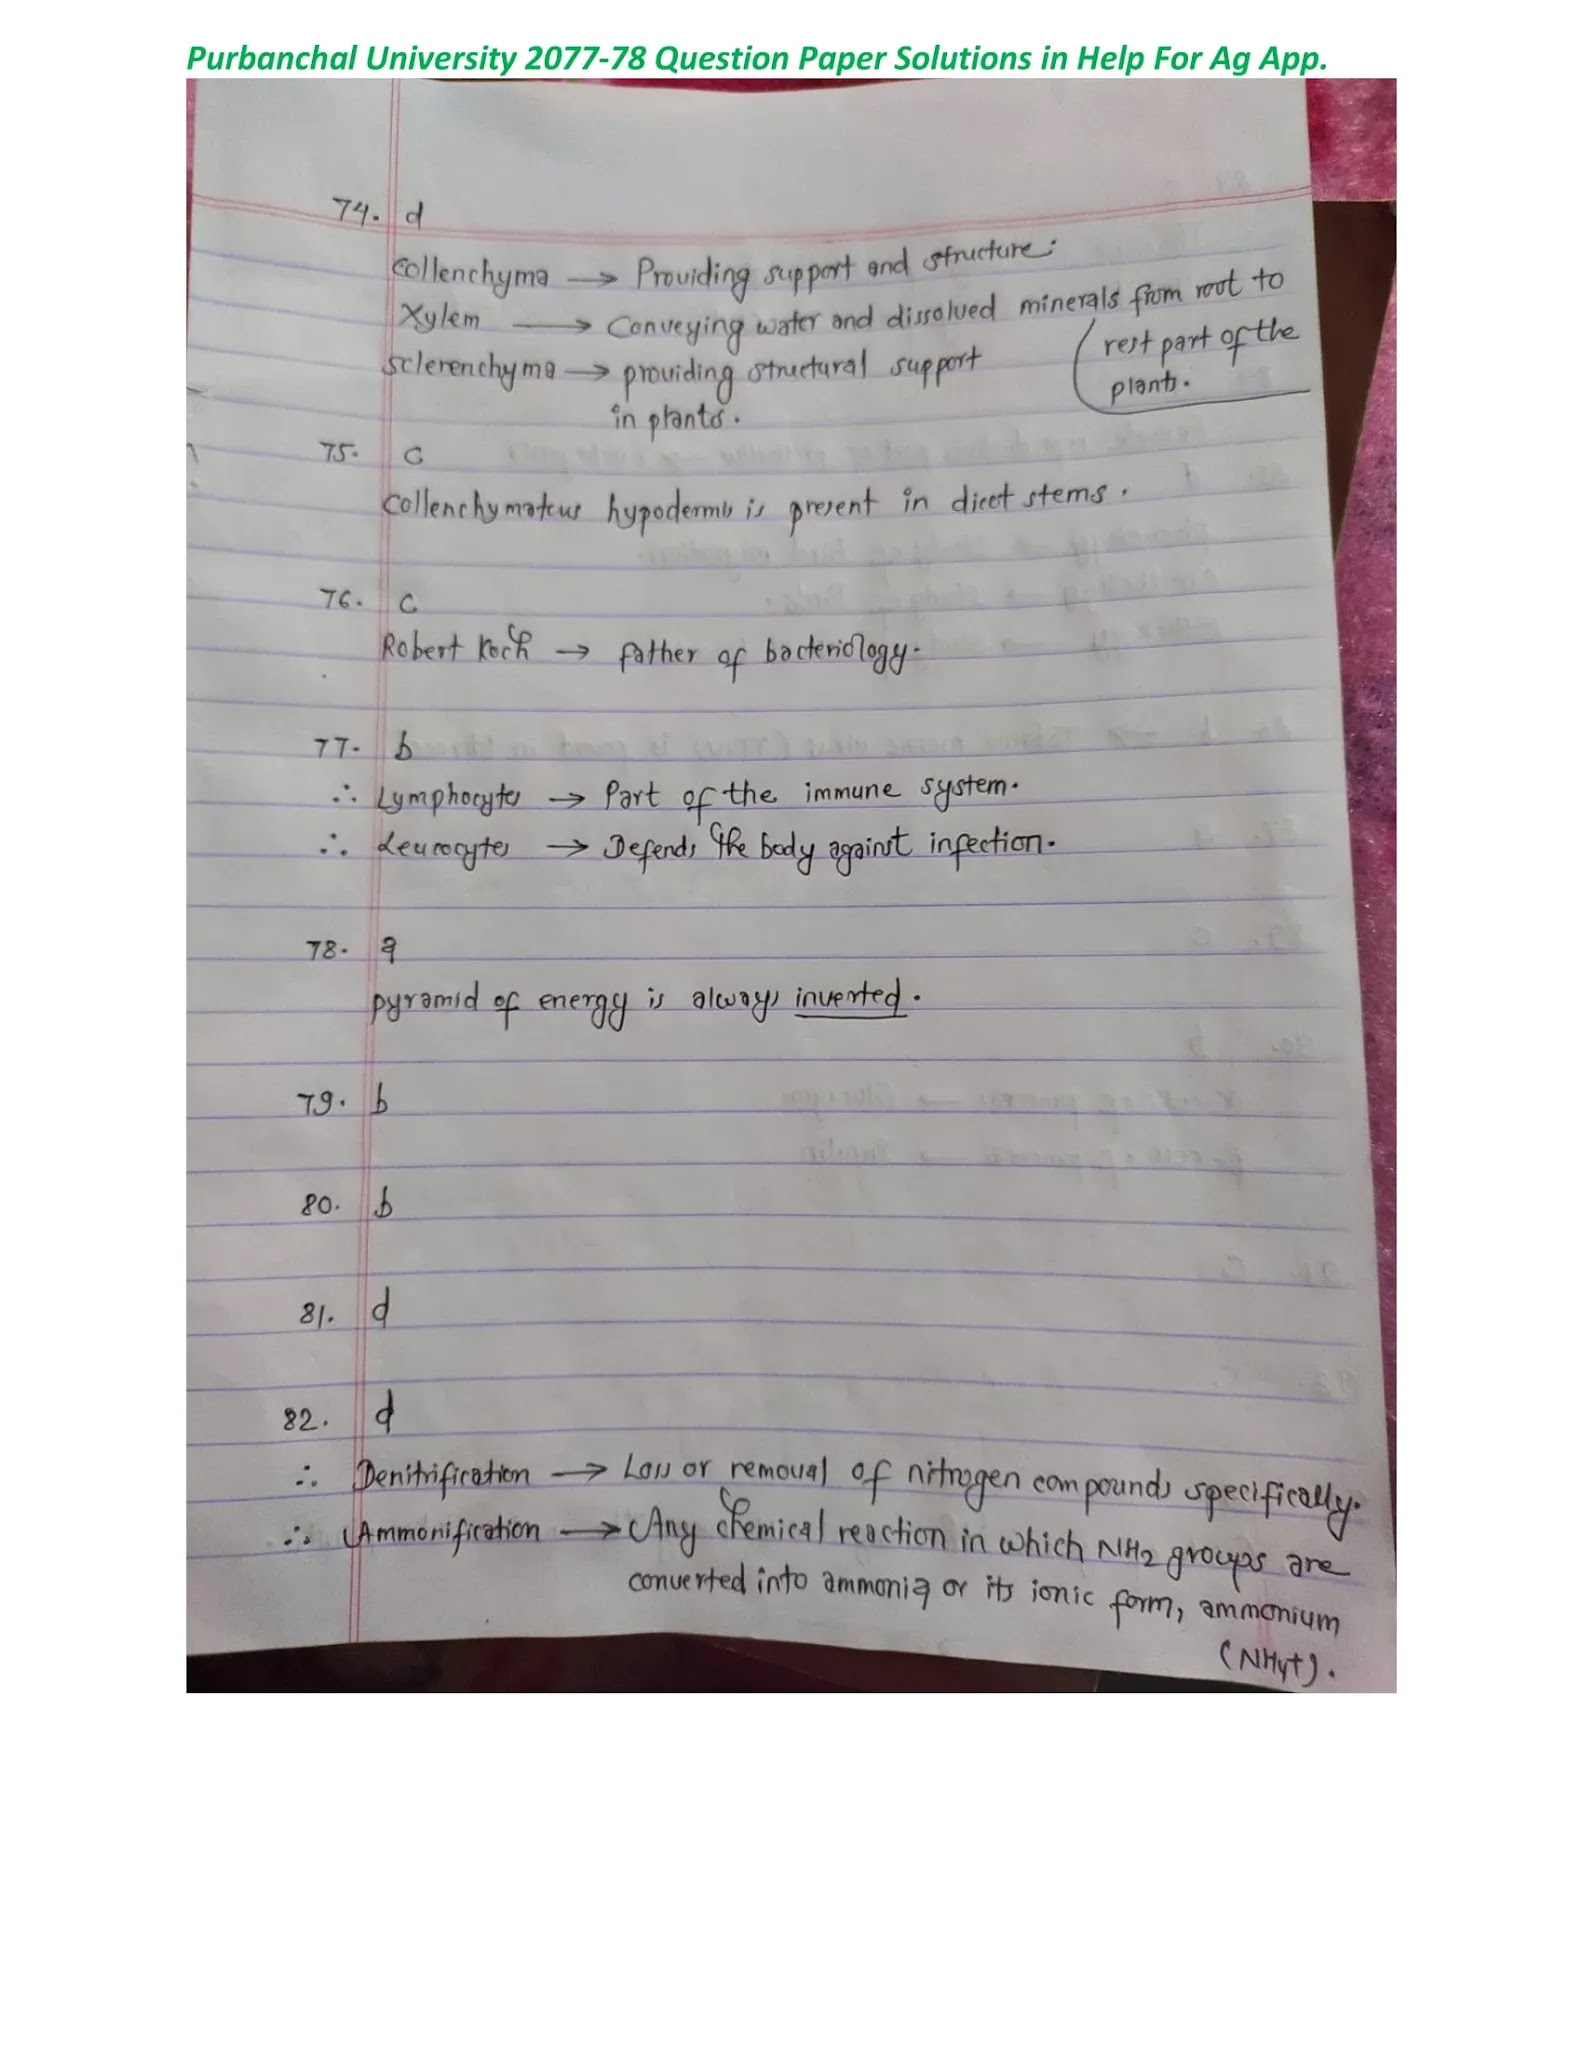 Purbanchal University 2077-78 Question Paper Solutions in Help For Ag App.
74. d
Collenchyma → Providing support and structure.
Xylem → Conveying water and dissolved minerals from root to
rest part of the
plants.
Sclerenchyma → providing structural support
in plants.
75. c
Collenchymatous hypodermis is present in dicot stems.
76. c
Robert Koch → father of bacteriology.
77. b
∴ Lymphocytes → Part of the immune system.
∴ Leucocytes → Defends the body against infection.
78. a
pyramid of energy is always inverted.
79. b
80. b
81. d
82. d
∴ Denitrification → Loss or removal of nitrogen compounds specifically.
∴ Ammonification → Any chemical reaction in which NH2 groups are
converted into ammonia or its ionic form, ammonium
(NH4+).